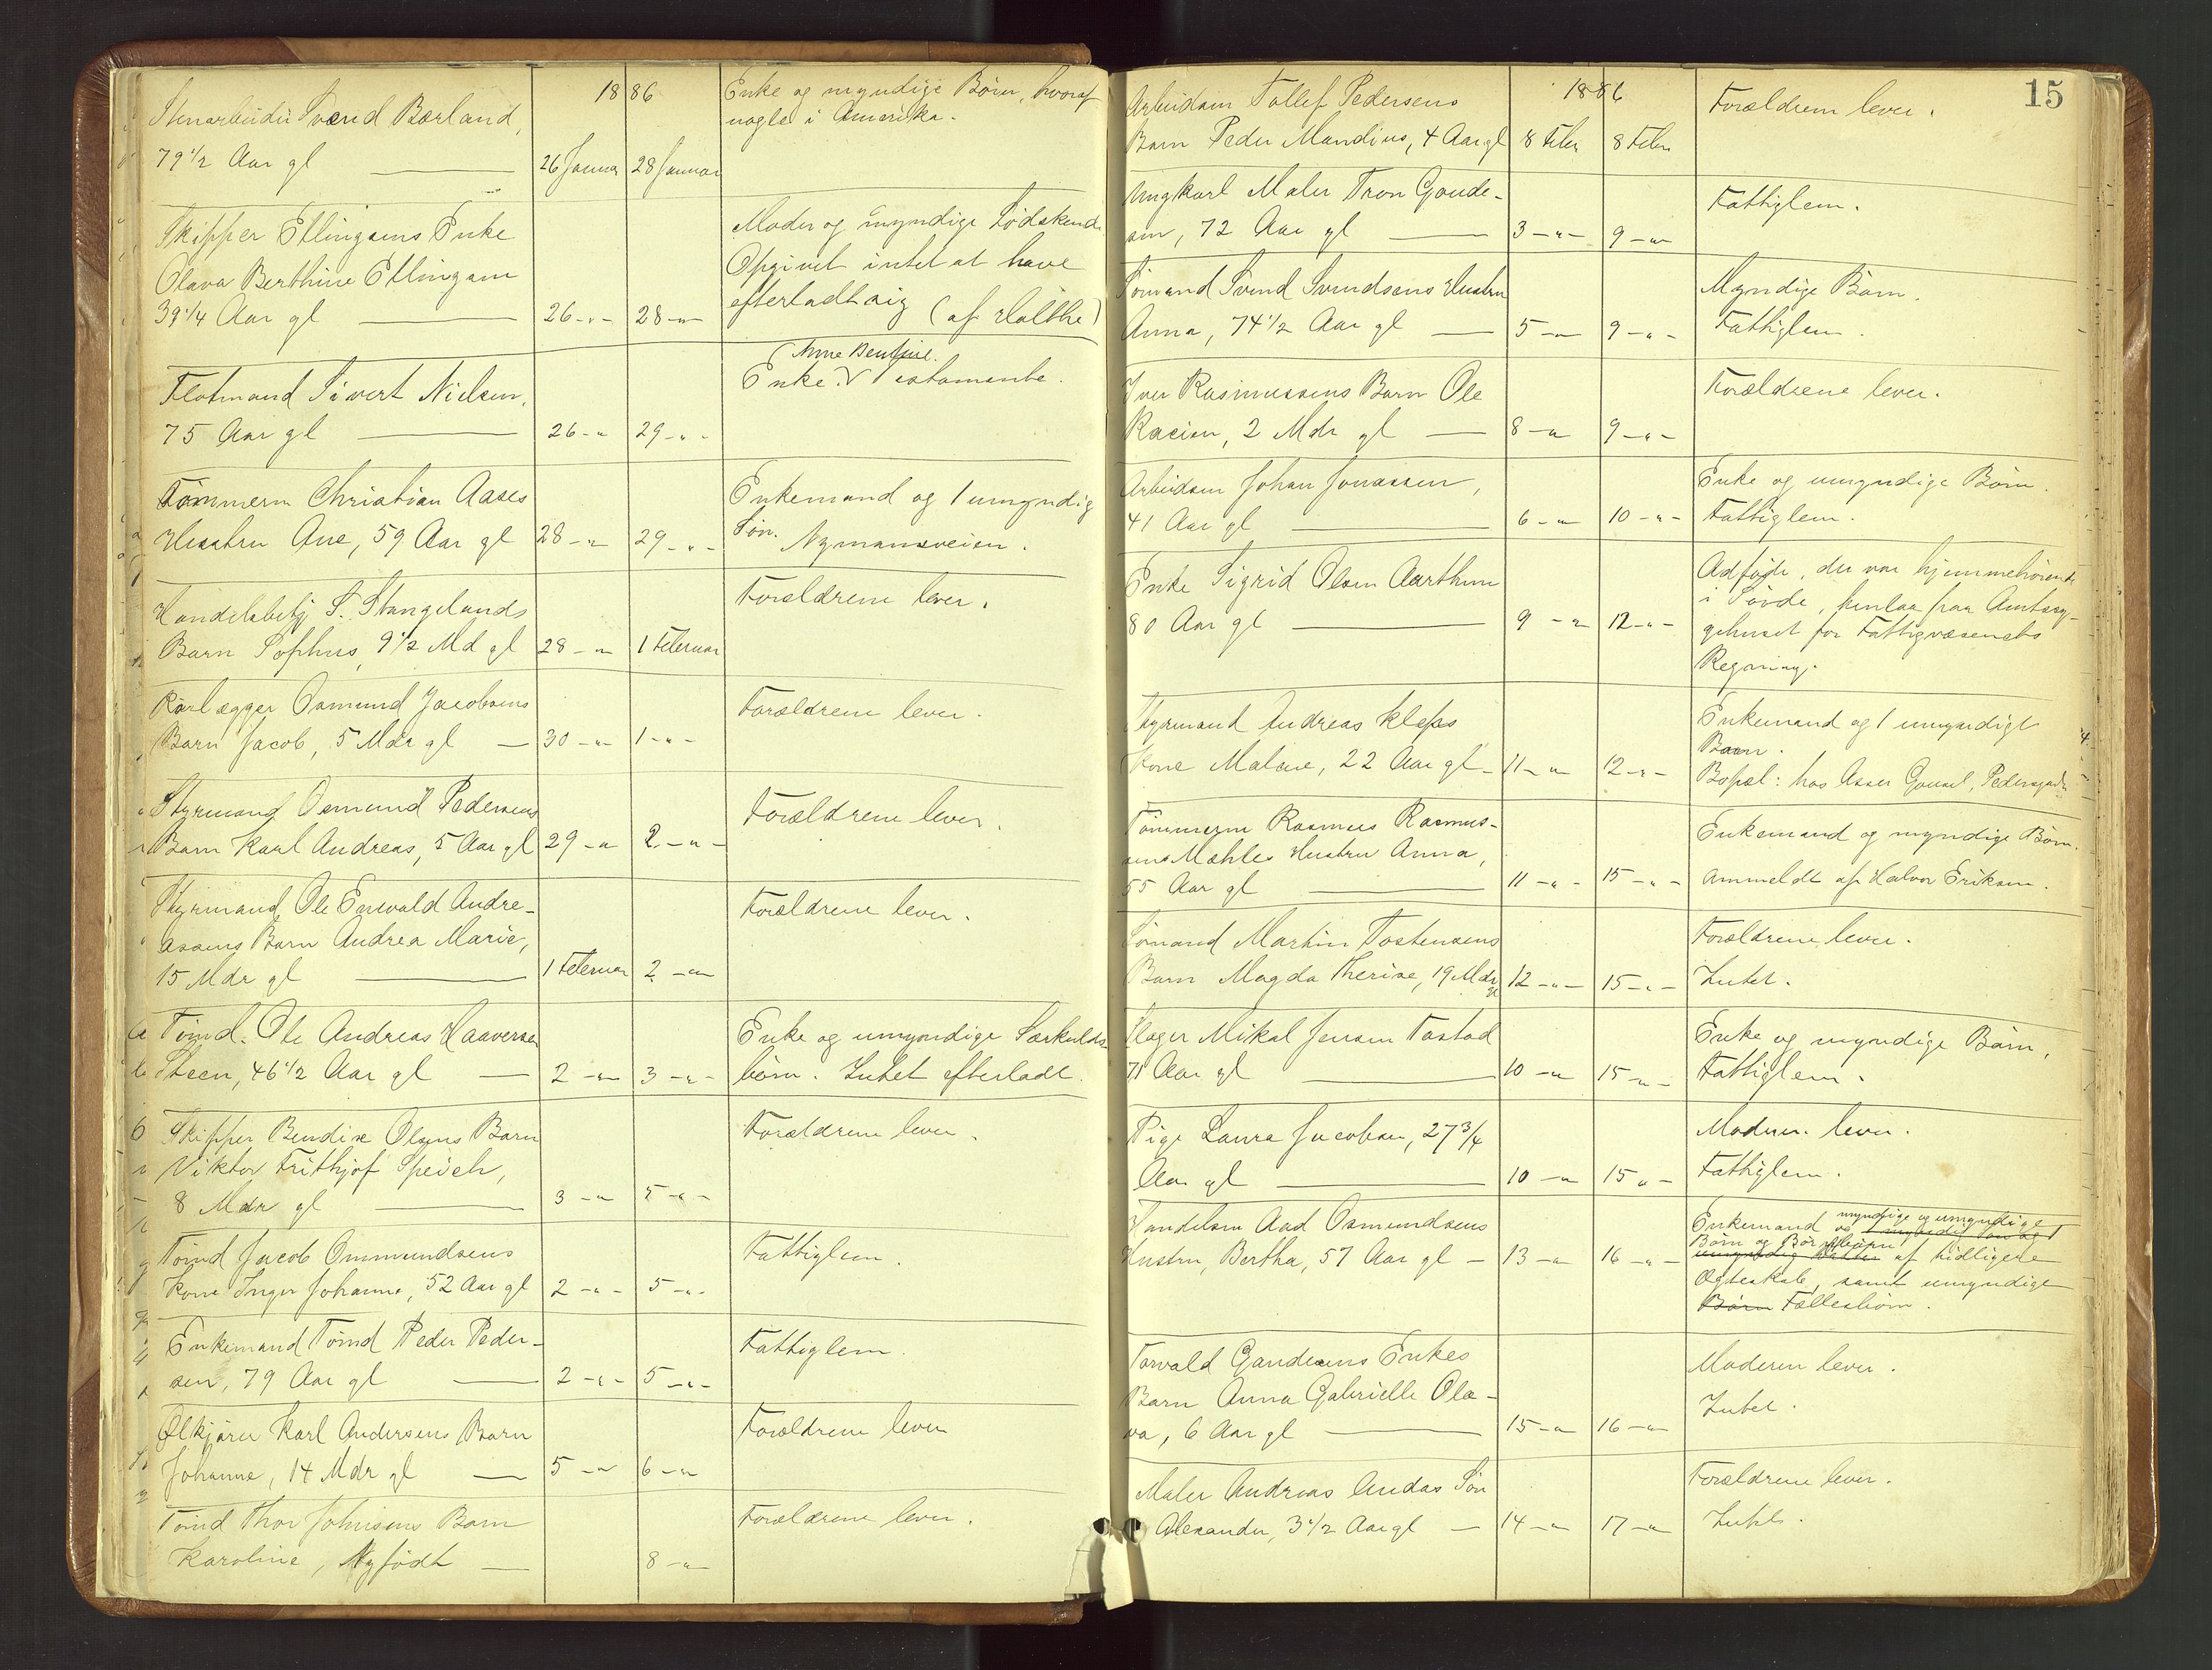 1886
Stenarbeider Svend Børland,
79 1/2 Aar gl — 26 Januar 28 Januar
Enke og myndige Børn, hvoraf
nogle i Amerika.
Skipper Ellingsens Enke
Olava Berthine Ellingsen
39 1/4 Aar gl — 26 -"- 28 -"-
Moder og myndige Sødskende
Opgivet intet at have
efterladt sig (af Holthe)
Flotmand Sivert Nielsen,
75 Aar gl — 26 -"- 29 -"-
(Anne Bentine.
Enke. V Testamente.
Tømmerm Christian Aases
Hustru Ane, 59 Aar gl 28 -"- 29 -"-
Enkemand og 1 umyndig
Søn. Nymansveien.
Handelsbetj S. Stangelands
Barn Sophus, 9 1/2 Md gl 28 -"- 1 Februar
Forældrene lever.
Rørlægger Osmund Jacobsens
Barn Jacob, 5 Mdr gl — 30 -"- 1 -"-
Forældrene lever.
Styrmand Osmund Pedersens
Barn Karl Andreas, 5 Aar gl 29 -"- 2 -"-
Forældrene lever.
Styrmand Ole Enevald Andre-
asens Barn Andrea Marie,
15 Mdr gl — 1 Februar 2 -"-
Forældrene lever.
Tømd. Ole Andreas Haaversen
Steen, 46 1/2 Aar gl — 2 -"- 3 -"-
Enke og umyndige Særkulds-
børn. Intet efterladt.
Skipper Bendix Olsens Barn
Viktor Frithjof Speich,
8 Mdr gl — 3 -"- 5 -"-
Forældrene lever.
Tømd Jacob Ommundsens
Kone Inger Johanne, 52 Aar gl 2 -"- 5 -"-
Fattiglem.
Enkemand Tømd Peder Peder-
sen, 79 Aar gl — 2 -"- 5 -"-
Fattiglem.
Ølkjører Karl Andersens Barn
Johanne, 14 Mdr gl — 5 -"- 6 -"-
Forældrene lever
Tømd Thor Johnsens Barn
Karoline, Nyfødt — 8 -"-
Forældrene lever.
15
1886
Arbeidsm Tollef Pedersens
Barn Peder Mandius, 4 Aar gl 8 Febr 8 Febr
Forældrem lever.
Ungkarl Maler Tron Gaude-
sen, 72 Aar gl — 3 -"- 9 -"-
Fattiglem.
Sømand Svend Svendsens Hustru
Anna, 74 1/2 Aar gl — 5 -"- 9 -"-
Myndige Børn.
Fattiglem
Iver Rasmussens Barn Ole
Racien, 2 Mdr gl — 8 -"- 9 -"-
Forældrene lever.
Arbeidsm Johan Jonassen,
41 Aar gl — 6 -"- 10 -"-
Enke og umyndige Børn.
Fattiglem.
Enke Sigrid Olsen Aarthun
80 Aar gl — 9 -"- 12 -"-
Adføde, der var hjemmehørende
i Søvde, henlaa paa Amtssy-
gehuset for Fattigvæsenets
Regning.
Styrmand Andreas Kleps
Kone Malene, 22 Aar gl — 11 -"- 12 -"-
Enkemand og 1 umyndigt
Barn.
Bopæl: hos Asser Gausel, Pedersgaden
Tømmerm Rasmus Rasmus-
sens Mæhles Hustru Anna,
55 Aar gl — 11 -"- 15 -"-
Enkemand og myndige Børn.
Anmeldt af Halvor Eriksen.
Sømand Martin Tostensens
Barn Magda Therise, 19 Mdr gl 12 -"- 15 -"-
Forældrene lever.
Intet.
Slager Mikal Jensen Tastad
71 Aar gl — 10 -"- 15 -"-
Enke og myndige Børn,
Fattiglem.
Pige Laura Jacobsen, 27 3/4
Aar gl — 10 -"- 15 -"-
Moderen lever.
Fattiglem.
Handelsm Aad Osmundsens
Hustru, Bertha, 57 Aar gl — 13 -"- 16 -"-
Enkemand og myndige og umyndige
Børn og Børnebørn af tidligere
Ægteskab, samt umyndige
Børn Fællesbørn.
Torvald Gandesens Enkes
Barn Anna Gabrielle Ola-
va, 6 Aar gl — 15 -"- 16 -"-
Moderen lever.
Intet.
Maler Andreas Andas Søn
Alexander, 3 1/2 Aar gl — 14 -"- 17 -"-
Forældrene lever.
Intet.